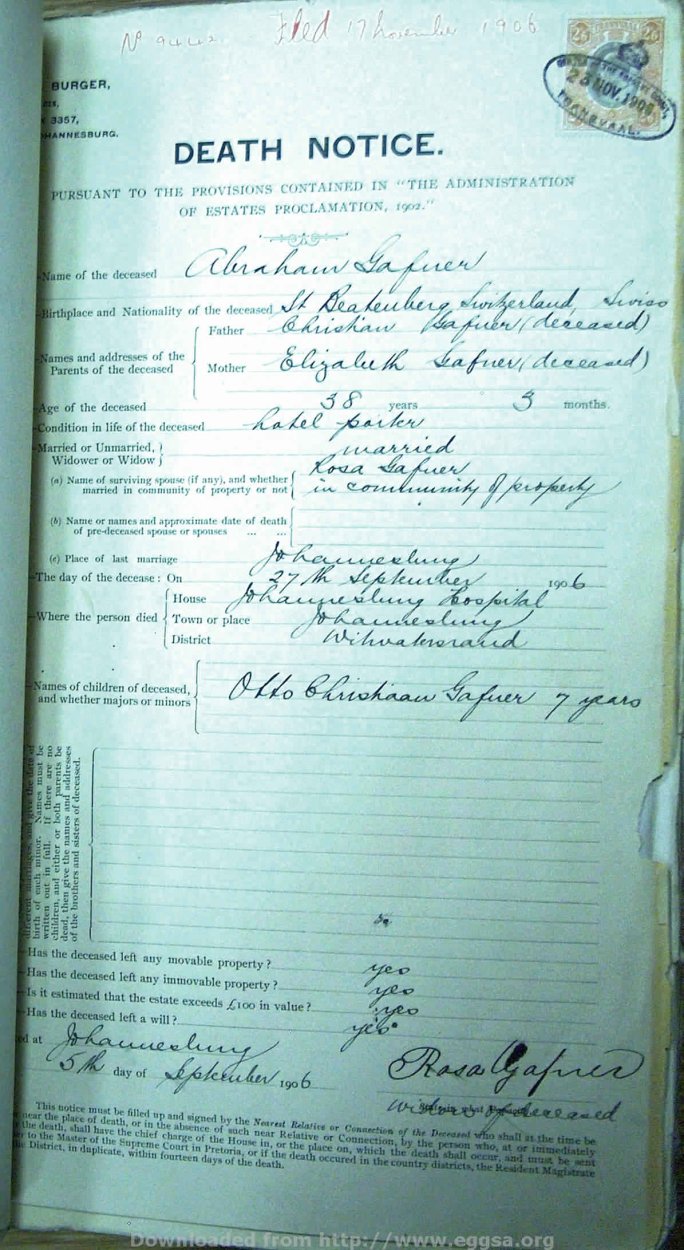 Nº 9442 Filed 17 November 1906
BURGER,
3357,
HANNESBURG.
2/6 TRANSVAAL 2/6
23 NOV. 1906
TRANSVAAL
DEATH NOTICE.
PURSUANT TO THE PROVISIONS CONTAINED IN "THE ADMINISTRATION
OF ESTATES PROCLAMATION, 1902."
Name of the deceased Abraham Gafner
Birthplace and Nationality of the deceased St Beatenberg Switzerland, Swiss
Names and addresses of the Parents of the deceased
Father Christian Gafner (deceased)
Mother Elizabeth Gafner (deceased)
Age of the deceased 38 years 3 months.
Condition in life of the deceased hotel porter
Married or Unmarried, Widower or Widow married
(a) Name of surviving spouse (if any), and whether Rosa Gafner
married in community of property or not in community of property
(b) Name or names and approximate date of death
of pre-deceased spouse or spouses ... ...
(c) Place of last marriage Johannesburg
The day of the decease: On 27th September 1906
Where the person died
House Johannesburg Hospital
Town or place Johannesburg
District Witwatersrand
Names of children of deceased,
and whether majors or minors Otto Christiaan Gafner 7 years
different marriages, and give the date of
birth of each minor. Names must be
written out in full. If there are no
children, and either or both parents be
dead, then give the names and addresses
of the brothers and sisters of deceased.
Has the deceased left any movable property? yes
Has the deceased left any immovable property? yes
Is it estimated that the estate exceeds £100 in value? yes
Has the deceased left a will? yes
ed at Johannesburg
5th day of September 1906 Rosa Gafner
widow of deceased
This notice must be filled up and signed by the Nearest Relative or Connection of the Deceased who shall at the time be
near the place of death, or in the absence of such near Relative or Connection, by the person who, at or immediately
the death, shall have the chief charge of the House in, or the place on, which the death shall occur, and must be sent
to the Master of the Supreme Court in Pretoria, or if the death occured in the country districts, the Resident Magistrate
District, in duplicate, within fourteen days of the death.
Downloaded from http://www.eggsa.org